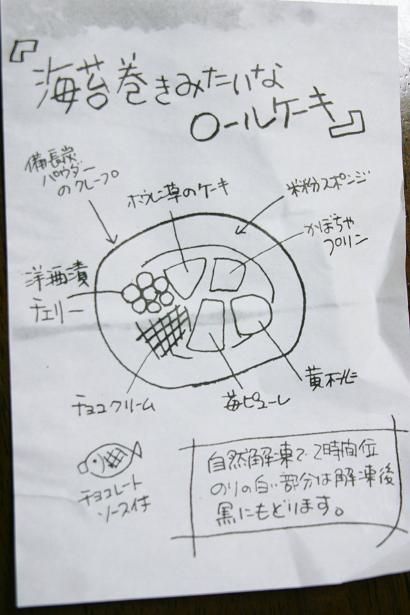 『海苔巻きみたいな
ロールケーキ』
備長炭
パウダー
のクレープ
ほうれん草のケーキ
米粉スポンジ
かぼちゃ
プリン
洋酒漬
チェリー
チョコクリーム
苺ピューレ
チョコレート
ソース付
自然解凍で2時間位
のりの白い部分は解凍後
黒にもどります。